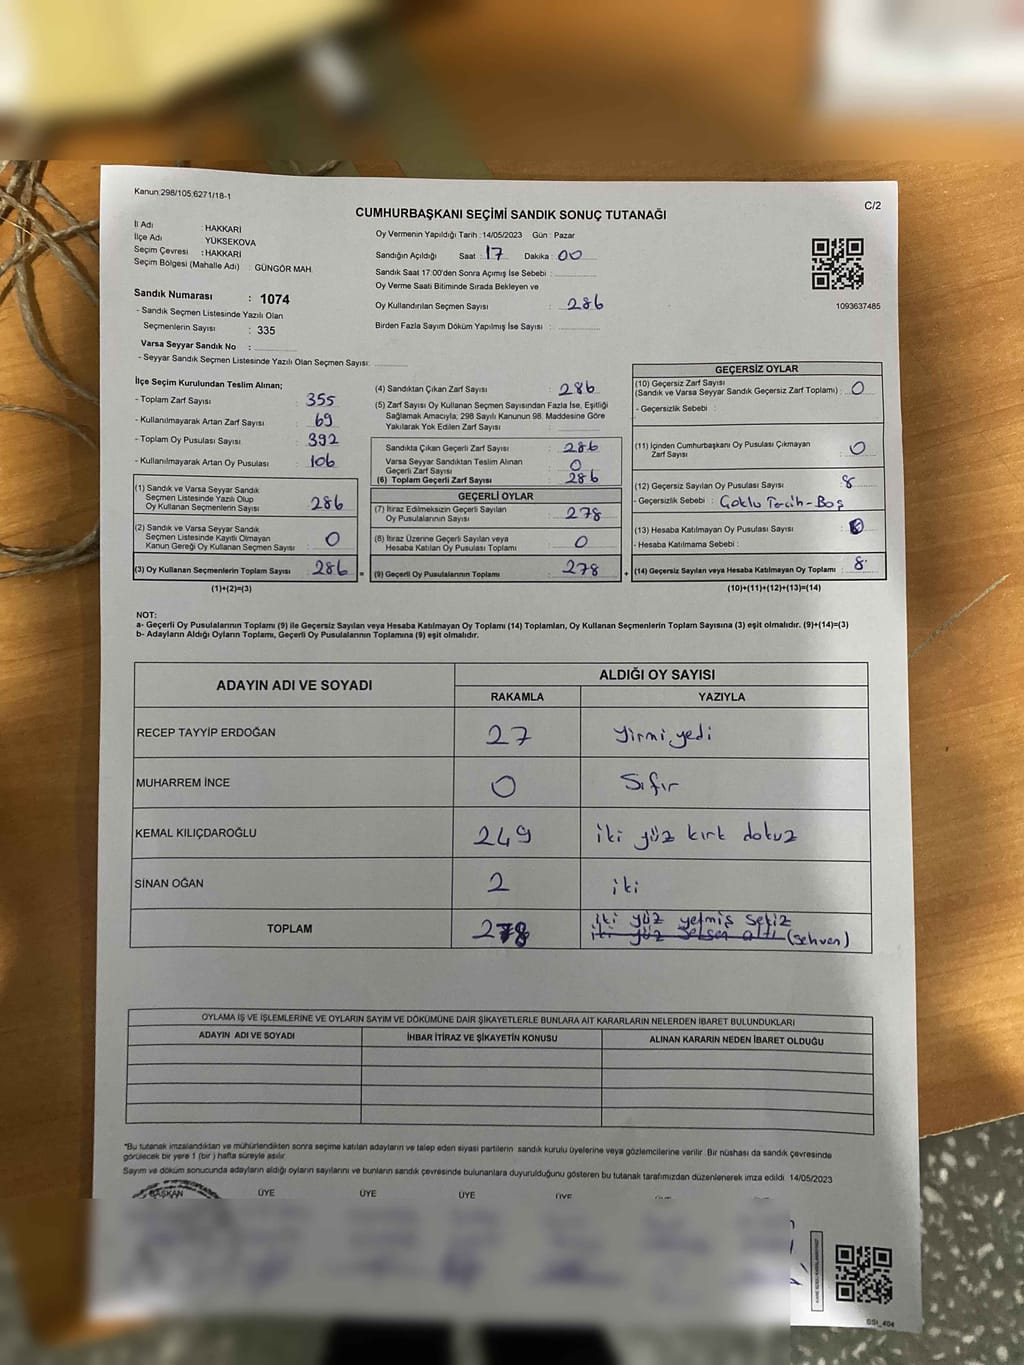 Kanun:298/105;6271/18-1
C/2
CUMHURBAŞKANI SEÇİMİ SANDIK SONUÇ TUTANAĞI
İl Adı HAKKARİ
İlçe Adı YÜKSEKOVA
Seçim Çevresi : HAKKARİ
Seçim Bölgesi (Mahalle Adı) : GÜNGÖR MAH.
Sandık Numarası : 1074
- Sandık Seçmen Listesinde Yazılı Olan
Seçmenlerin Sayısı : 335
Varsa Seyyar Sandık No :
- Seyyar Sandık Seçmen Listesinde Yazılı Olan Seçmen Sayısı:
Oy Vermenin Yapıldığı Tarih : 14/05/2023 Gün : Pazar
Sandığın Açıldığı Saat : 17 Dakika 00
Sandık Saat 17:00'den Sonra Açımış İse Sebebi :
Oy Verme Saati Bitiminde Sırada Bekleyen ve
Oy Kullandırılan Seçmen Sayısı : 286
Birden Fazla Sayım Döküm Yapılmış İse Sayısı :
1093637485
İlçe Seçim Kurulundan Teslim Alınan;
- Toplam Zarf Sayısı : 355
- Kullanılmayarak Artan Zarf Sayısı : 69
- Toplam Oy Pusulası Sayısı : 392
- Kullanılmayarak Artan Oy Pusulası : 106
(1) Sandık ve Varsa Seyyar Sandık
Seçmen Listesinde Yazılı Olup
Oy Kullanan Seçmenlerin Sayısı : 286
(2) Sandık ve Varsa Seyyar Sandık
Seçmen Listesinde Kayıtlı Olmayan
Kanun Gereği Oy Kullanan Seçmen Sayısı : 0
(3) Oy Kullanan Seçmenlerin Toplam Sayısı : 286 =
(1)+(2)=(3)
(4) Sandıktan Çıkan Zarf Sayısı : 286
(5) Zarf Sayısı Oy Kullanan Seçmen Sayısından Fazla İse, Eşitliği
Sağlamak Amacıyla, 298 Sayılı Kanunun 98. Maddesine Göre
Yakılarak Yok Edilen Zarf Sayısı :
Sandıkta Çıkan Geçerli Zarf Sayısı : 286
Varsa Seyyar Sandıktan Teslim Alınan
Geçerli Zarf Sayısı : 0
(6) Toplam Geçerli Zarf Sayısı : 286
GEÇERLİ OYLAR
(7) İtiraz Edilmeksizin Geçerli Sayılan
Oy Pusulalarının Sayısı : 278
(8) İtiraz Üzerine Geçerli Sayılan veya
Hesaba Katılan Oy Pusulası Toplamı : 0
(9) Geçerli Oy Pusulalarının Toplamı : 278 +
GEÇERSİZ OYLAR
(10) Geçersiz Zarf Sayısı
(Sandık ve Varsa Seyyar Sandık Geçersiz Zarf Toplamı) : 0
- Geçersizlik Sebebi :
(11) İçinden Cumhurbaşkanı Oy Pusulası Çıkmayan
Zarf Sayısı : 0
(12) Geçersiz Sayılan Oy Pusulası Sayısı : 8
- Geçersizlik Sebebi : Çoklu Tercih-Boş
(13) Hesaba Katılmayan Oy Pusulası Sayısı :
- Hesaba Katılmama Sebebi :
(14) Geçersiz Sayılan veya Hesaba Katılmayan Oy Toplamı : 8
(10)+(11)+(12)+(13)=(14)
NOT:
a- Geçerli Oy Pusulalarının Toplamı (9) ile Geçersiz Sayılan veya Hesaba Katılmayan Oy Toplamı (14) Toplamları, Oy Kullanan Seçmenlerin Toplam Sayısına (3) eşit olmalıdır. (9)+(14)=(3)
b- Adayların Aldığı Oyların Toplamı, Geçerli Oy Pusulalarının Toplamına (9) eşit olmalıdır.
ADAYIN ADI VE SOYADI
ALDIĞI OY SAYISI
RAKAMLA YAZIYLA
RECEP TAYYİP ERDOĞAN 27 Yirmi yedi
MUHARREM İNCE 0 Sıfır
KEMAL KILIÇDAROĞLU 249 iki yüz kırk dokuz
SİNAN OĞAN 2 iki
TOPLAM 278 iki yüz yetmiş sekiz
iki yüz seksen altı (sehven)
OYLAMA İŞ VE İŞLEMLERİNE VE OYLARIN SAYIM VE DÖKÜMÜNE DAİR ŞİKAYETLERLE BUNLARA AİT KARARLARIN NELERDEN İBARET BULUNDUKLARI
ADAYIN ADI VE SOYADI İHBAR İTİRAZ VE ŞİKAYETİN KONUSU ALINAN KARARIN NEDEN İBARET OLDUĞU
*Bu tutanak imzalandıktan ve mühürlendikten sonra seçime katılan adayların ve talep eden siyasi partilerin sandık kurulu üyelerine veya gözlemcilerine verilir. Bir nüshası da sandık çevresinde
görülecek bir yere 1 (bir) hafta süreyle asılır.
Sayım ve döküm sonucunda adayların aldığı oyların sayılarını ve bunların sandık çevresinde bulunanlara duyurulduğunu gösteren bu tutanak tarafımızdan düzenlenerek imza edildi. 14/05/2023
BAŞKAN ÜYE ÜYE ÜYE ÜYE
SSI_404